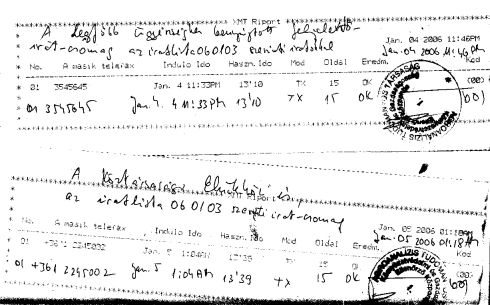 XMT Riport
A Legfőbb Ügyészségre benyújtott feljelentő-
irat-csomag az iratlista 060103 szerinti iratokkal
Jan. 04 2006 11:46PM
Jan. 04 2006 11:46 PM
No. A masik telefax Indulo Ido Haszn.Ido Mod Oldal Eredm. Kod
01 3545645 Jan. 4 11:33PM 13'10 TX 15 OK
01 3545645 Jan. 4. 4 11:33PM 13'10 TX 15 OK 00)
A Köztársasági Elnökhöz
az iratlista 060103 szerinti irat-csomag
XMT Riport
Jan. 05 2006 01:18AM
Jan. 05 2006 01:18AM
No. A masik telefax Indulo Ido Haszn.Ido Mod Oldal Eredm. Kod
01 +361 2245002 Jan. 5 1:04AM 13'39 TX 15 OK (00)
01 +361 2245002 Jan. 5 1:04AM 13'39 TX 15 OK 00)